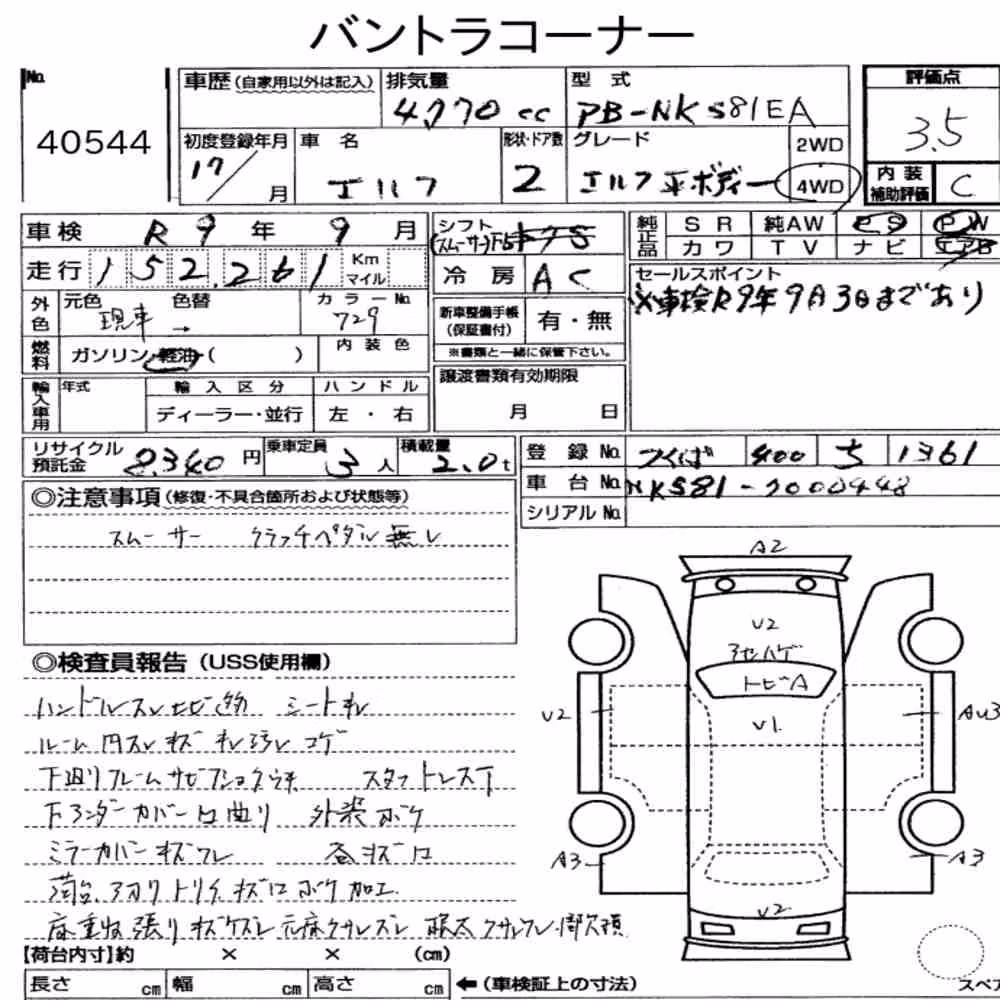 バントラコーナー
No.
40544
車歴(自家用以外は記入)
排気量
4,770cc
型式
PB-NKS81EA
評価点
3.5
初度登録年月
17/ 月
車名
エルフ
形状・ドア数
2
グレード
エルフ平ボディー
2WD
4WD
内装
補助評価
C
車検 R9年9月
シフト
(スムーサー)
F5
走行 152,261 Km
マイル
冷房 AC
純正品
SR 純AW PS PW
カワ TV ナビ エアB
セールスポイント
※車検R9年9月3日まであり
外色
元色 現車 → 色替
カラーNo.
729
新車整備手帳
(保証書付)
有・無
※書類と一緒に保管下さい。
燃料
ガソリン・軽油・( )
内装色
輸入車用
年式
輸入区分
ディーラー・並行
ハンドル
左・右
譲渡書類有効期限
月 日
リサイクル
預託金
8,340円
乗車定員
3人
積載量
2.0t
登録No. つくば 400 ち 1361
車台No. NKS81-7000448
シリアルNo.
◎注意事項(修復・不具合箇所および状態等)
スムーサー クラッチペダル無し
A2
U2
アセハゲ
トビA
U1.
U2
AU3
A3
A3
U2
◎検査員報告(USS使用欄)
ハンドルスレ シートキレ
ルーム内スレキズ キレ汚レ コゲ
下廻りフレームサビ スタットレス
下アンダーカバー凹曲り 外装ボケ
ミラーカバーキズワレ 各キズ凹
荷台 アオリ トリイ キズ凹ボケ加工
【荷台内寸】約 × × (cm)
長さ cm 幅 cm 高さ cm ←(車検証上の寸法)
スペア